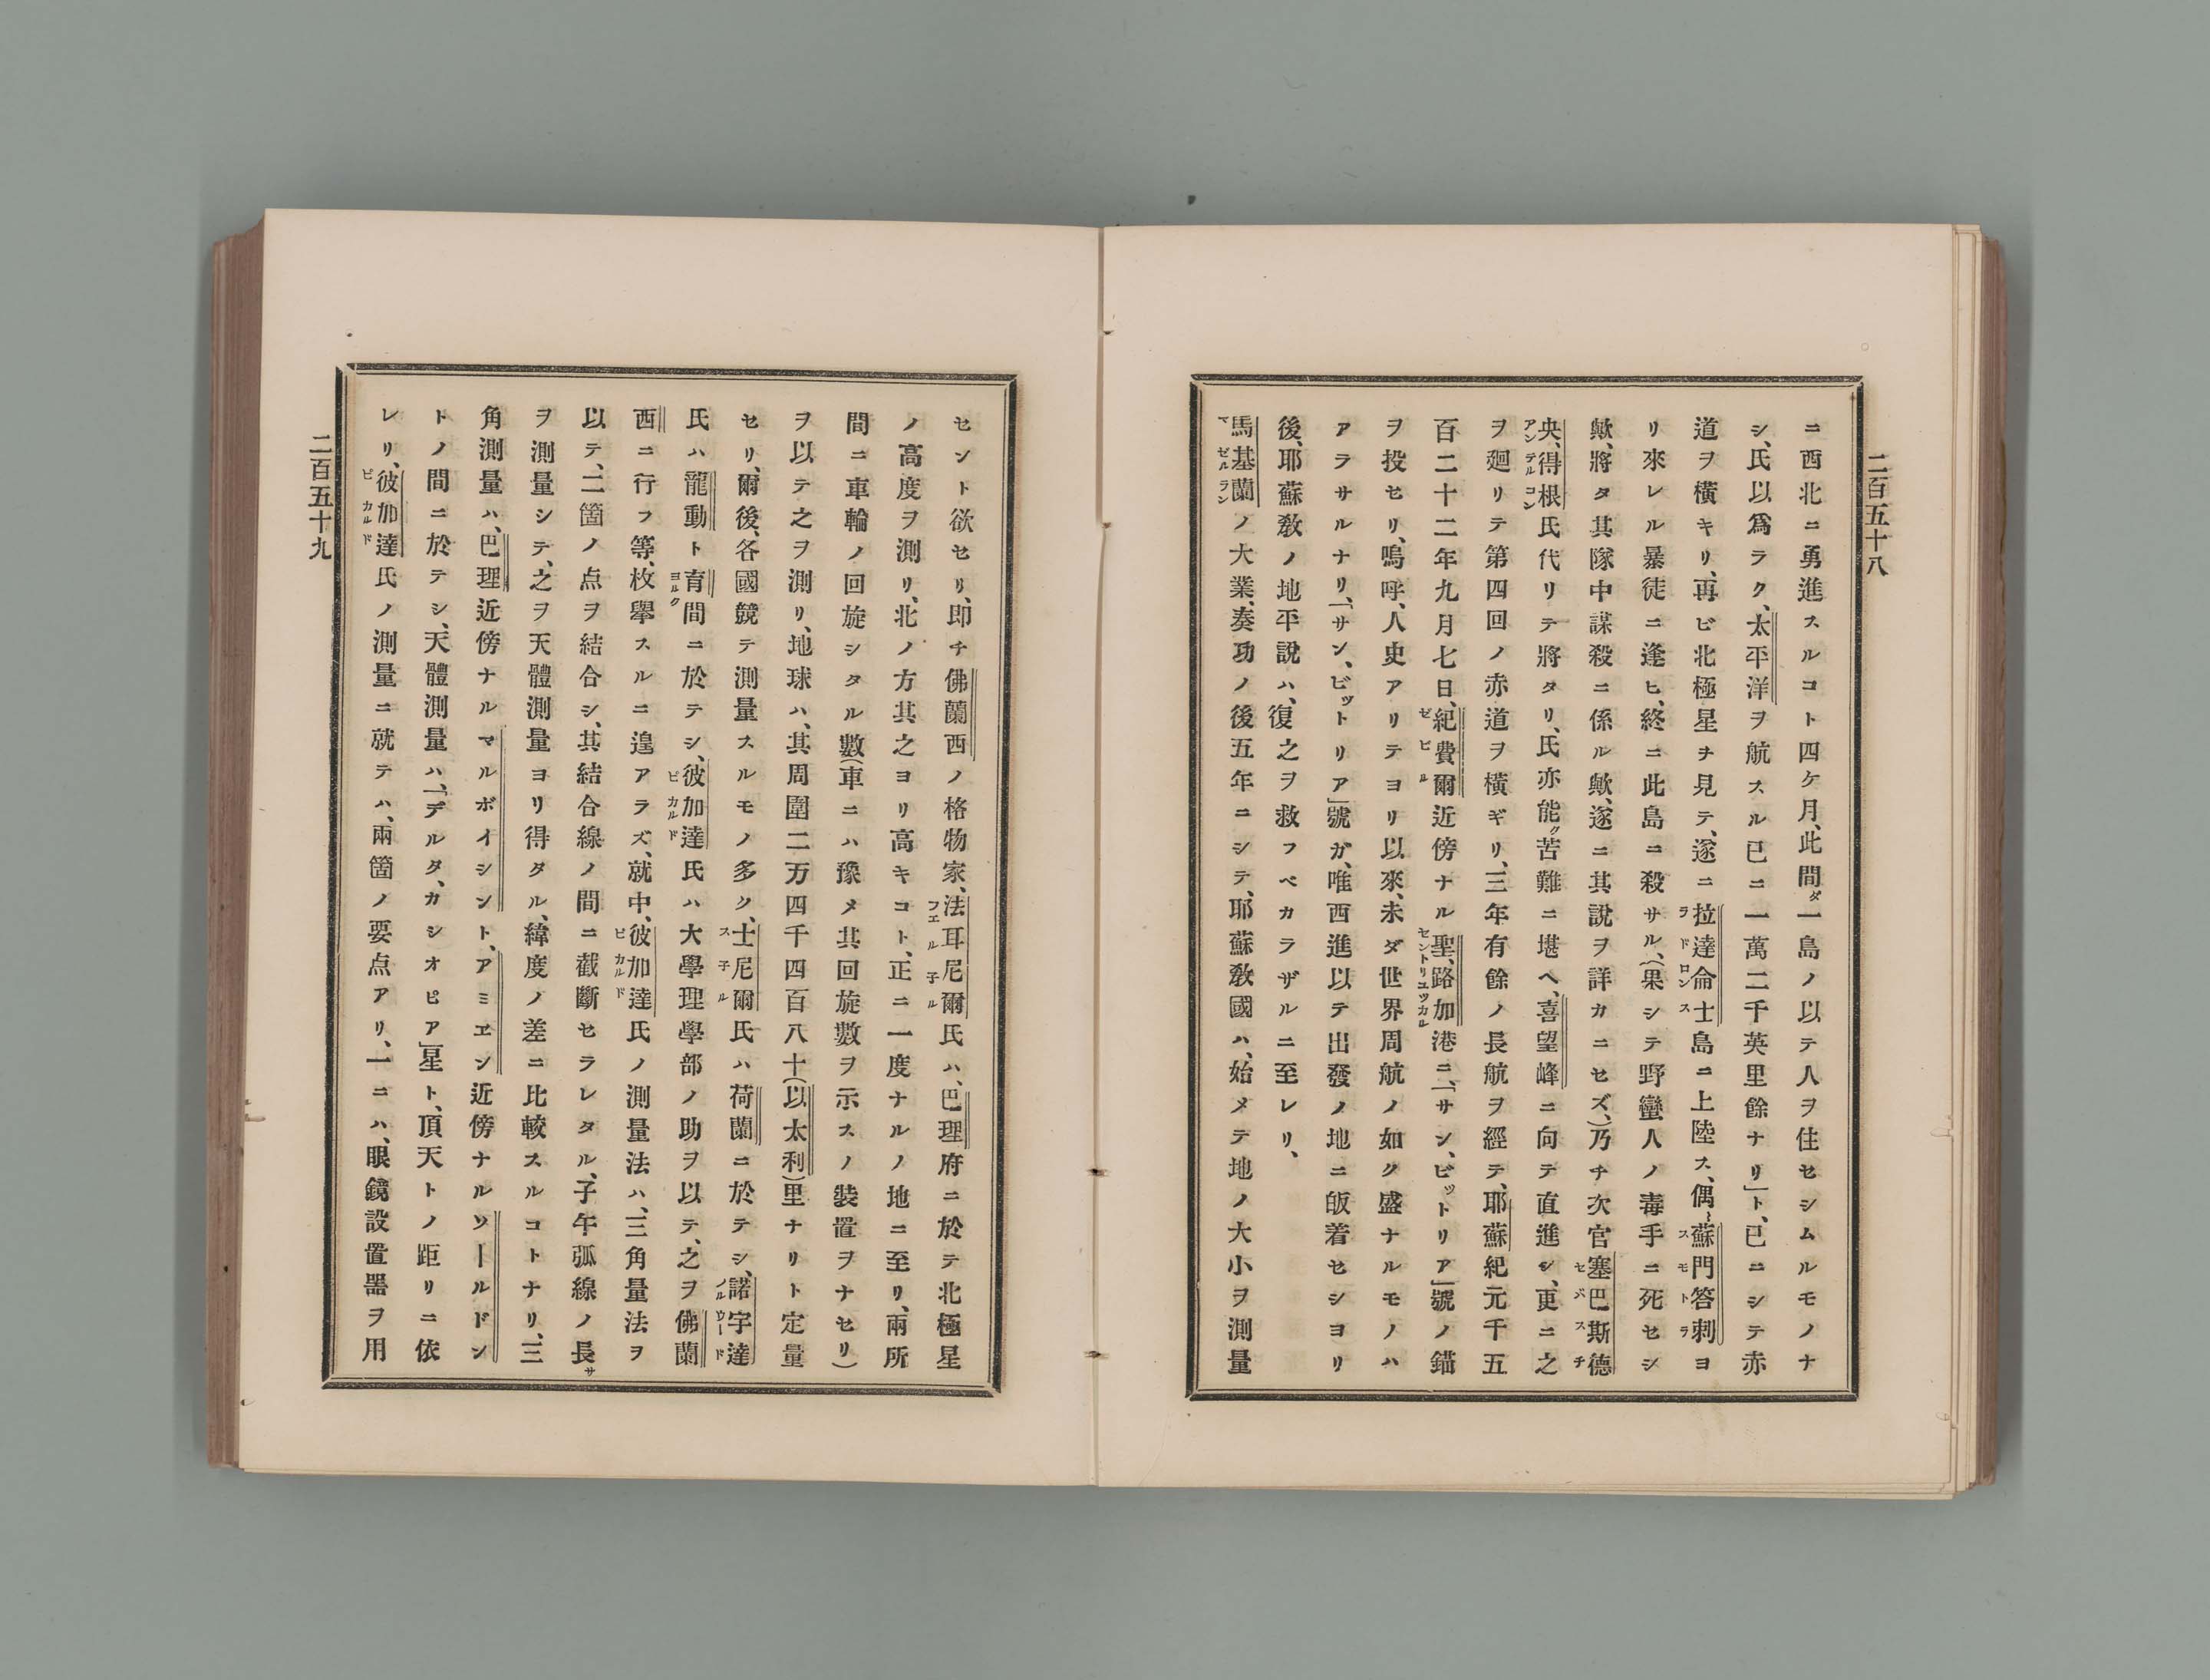 二百五十八
ニ西北ニ勇進スルコト四ケ月、此間ダ一島ノ以テ人ヲ住セシムルモノナ
シ、氏以爲ラク、太平洋ヲ航スル已ニ一萬二千英里餘ナリ」ト、已ニシテ赤
道ヲ横キリ、再ビ北極星ヲ見テ、遂ニ拉達侖士島ニ上陸ス、偶〻蘇門答刺ヨ
ラドロンス
スモトラ
リ來レル暴徒ニ逢ヒ、終ニ此島ニ殺サル、（果シテ野蠻人ノ毒手ニ死セシ
歟、將タ其隊中謀殺ニ係ル歟、遂ニ其説ヲ詳カニセズ、）乃チ次官塞巴斯德
セバスチ
央、得根氏代リテ將タリ、氏亦能ク苦難ニ堪ヘ、喜望峰ニ向テ直進シ、更ニ之
アンテルコン
ヲ廻リテ第四回ノ赤道ヲ横ギリ、三年有餘ノ長航ヲ經テ、耶蘇紀元千五
百二十二年九月七日、紀費爾近傍ナル聖、路加港ニ、「サン、ビットリア」號ノ錨
ゼビル
セントリユツカル
ヲ投セリ、嗚呼、人史アリテヨリ以來、未ダ世界周航ノ如ク盛ナルモノハ
アラサルナリ、「サン、ビットリア」號ガ、唯西進以テ出發ノ地ニ皈着セシヨリ
後、耶蘇敎ノ地平説ハ、復之ヲ救フベカラザルニ至レリ、
馬基蘭ノ大業、奏功ノ後五年ニシテ、耶蘇敎國ハ、始メテ地ノ大小ヲ測量
マゼルラン
セント欲セリ、即チ佛蘭西ノ格物家、法耳尼爾氏ハ、巴理府ニ於テ北極星
フエル子ル
ノ高度ヲ測リ、北ノ方其之ヨリ高キコト、正ニ一度ナルノ地ニ至リ、兩所
間ニ車輪ノ回旋シタル數（車ニハ豫メ其回旋數ヲ示スノ裝置ヲナセリ）
ヲ以テ之ヲ測リ、地球ハ、其周圍二万四千四百八十（以太利）里ナリト定量
セリ、爾後、各國競テ測量スルモノ多ク、士尼爾氏ハ荷蘭ニ於テシ、諾宇達
ス子ル
ノルウード
氏ハ龍動ト育間ニ於テシ、彼加達氏ハ大學理學部ノ助ヲ以テ、之ヲ佛蘭
ヨルク
ピカルド
西ニ行フ等、枚擧スルニ遑アラズ、就中、彼加達氏ノ測量法ハ、三角量法ヲ
ピカルド
以テ、二箇ノ点ヲ結合シ、其結合線ノ間ニ截斷セラレタル、子午弧線ノ長サ
ヲ測量シテ、之ヲ天體測量ヨリ得タル、緯度ノ差ニ比較スルコトナリ、三
角測量ハ、巴理近傍ナルマルボイシント、アミエン近傍ナルソールドン
トノ間ニ於テシ、天體測量ハ、「デルタ、カシオピア」星ト、頂天トノ距リニ依
レリ、彼加達氏ノ測量ニ就テハ、兩箇ノ要点アリ、一ニハ、眼鏡設置器ヲ用
ピカルド
二百五十九